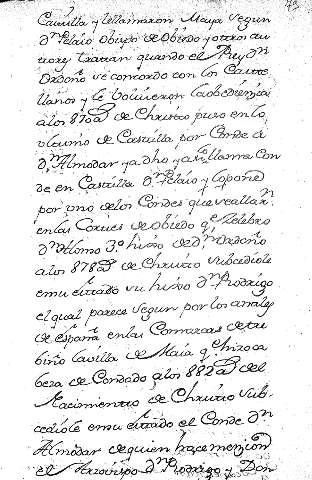 Castilla y le llamaron Maya segun
dⁿ Pelaio Obispo de Obiedo y otros au
tores tratan quando el Rey dⁿ
Ordoño se concordo con los Caste
llanos y le bolvieron la obediencia
a los 870 a de Christo puso en lo
ultimo de Castilla por Conde a
dⁿ Almodar y a dho y a llama Con
de en Castilla dⁿ Pelaio y lo pone
por uno de los Condes que se allarⁿ
en las Cortes de obiedo qᵉ Zelebro
dⁿ Alonso 3º hixo de dⁿ Ordoño
a los 878 a de Christo subcediole
en su estado su hixo dⁿ Rodrigo
el qual parece segun por los anales
de españa en las Comarcas de tre
biño la villa de Maia qᵉ hizo ca
beza de Condado a los 882 a del
Nacimiento de Christo sub
cediole en su estado el Conde dⁿ
Almodar de quien hace menzion
el Arzobispo dⁿ Rodrigo y Don